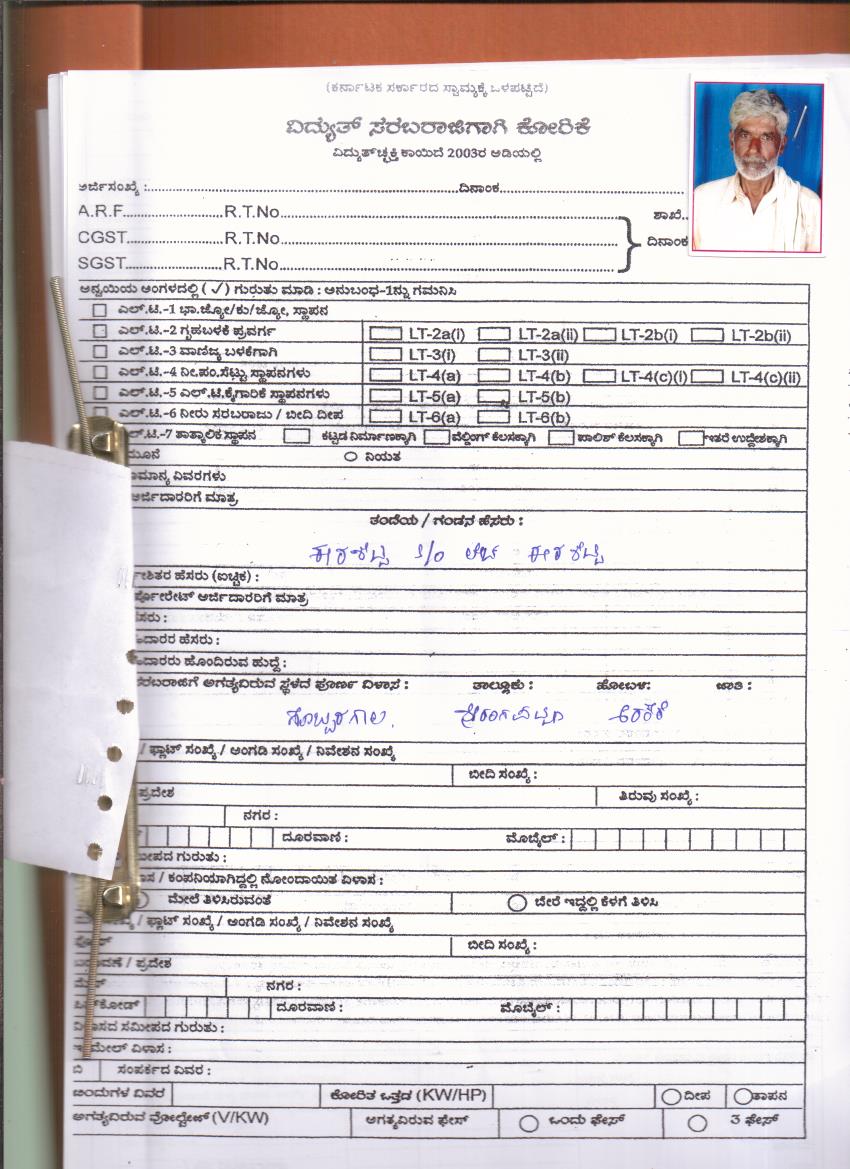 (ಕರ್ನಾಟಕ ಸರ್ಕಾರದ ಸ್ವಾಮ್ಯಕ್ಕೆ ಒಳಪಟ್ಟಿದೆ)
ವಿದ್ಯುತ್ ಸರಬರಾಜಿಗಾಗಿ ಕೋರಿಕೆ
ವಿದ್ಯುತ್‌ಚ್ಛಕ್ತಿ ಕಾಯಿದೆ 2003ರ ಅಡಿಯಲ್ಲಿ
ಅರ್ಜಿಸಂಖ್ಯೆ :.......... ದಿನಾಂಕ..........
A.R.F.......... R.T.No.......... ಶಾಖೆ..
CGST.......... R.T.No.......... ದಿನಾಂಕ
SGST.......... R.T.No..........
ಅನ್ವಯಿಯ ಅಂಗಳದಲ್ಲಿ ( ✓ ) ಗುರುತು ಮಾಡಿ : ಅನುಬಂಧ-1ನ್ನು ಗಮನಿಸಿ
ಎಲ್.ಟಿ.-1 ಭಾ.ಜ್ಯೋ/ಕು/ಜ್ಯೋ, ಸ್ಥಾಪನ
ಎಲ್.ಟಿ.-2 ಗೃಹಬಳಕೆ ಪ್ರವರ್ಗ LT-2a(i) LT-2a(ii) LT-2b(i) LT-2b(ii)
ಎಲ್.ಟಿ.-3 ವಾಣಿಜ್ಯ ಬಳಕೆಗಾಗಿ LT-3(i) LT-3(ii)
ಎಲ್.ಟಿ.-4 ನೀ.ಪಂ.ಸೆಟ್ಟು ಸ್ಥಾಪನಗಳು LT-4(a) LT-4(b) LT-4(c)(i) LT-4(c)(ii)
ಎಲ್.ಟಿ.-5 ಎಲ್.ಟಿ.ಕೈಗಾರಿಕೆ ಸ್ಥಾಪನಗಳು LT-5(a) LT-5(b)
ಎಲ್.ಟಿ.-6 ನೀರು ಸರಬರಾಜು / ಬೀದಿ ದೀಪ LT-6(a) LT-6(b)
ಲ್.ಟಿ.-7 ತಾತ್ಕಾಲಿಕ ಸ್ಥಾಪನ ಕಟ್ಟಡ ನಿರ್ಮಾಣಕ್ಕಾಗಿ ವೆಲ್ಡಿಂಗ್ ಕೆಲಸಕ್ಕಾಗಿ ಪಾಲಿಶ್ ಕೆಲಸಕ್ಕಾಗಿ ಇತರೆ ಉದ್ದೇಶಕ್ಕಾಗಿ
ಮೂನೆ ನಿಯತ
ಾಮಾನ್ಯ ವಿವರಗಳು
ಅರ್ಜಿದಾರರಿಗೆ ಮಾತ್ರ
ತಂದೆಯ / ಗಂಡನ ಹೆಸರು :
ಈರಶೆಟ್ಟಿ S/o ಲೇಟ್ ಈರಶೆಟ್ಟಿ
ಶಿತರ ಹೆಸರು (ಐಚ್ಛಿಕ) :
ರ್ಪೋರೇಟ್ ಅರ್ಜಿದಾರರಿಗೆ ಮಾತ್ರ
ಸರು :
ದಾರರ ಹೆಸರು :
ದಾರರು ಹೊಂದಿರುವ ಹುದ್ದೆ :
ಸರಬರಾಜಿಗೆ ಅಗತ್ಯವಿರುವ ಸ್ಥಳದ ಪೂರ್ಣ ವಿಳಾಸ : ತಾಲ್ಲೂಕು : ಹೋಬಳಿ: ಜಾತಿ :
ಅರಕೆರೆ
/ ಫ್ಲಾಟ್ ಸಂಖ್ಯೆ / ಅಂಗಡಿ ಸಂಖ್ಯೆ / ನಿವೇಶನ ಸಂಖ್ಯೆ
ಬೀದಿ ಸಂಖ್ಯೆ :
ಪ್ರದೇಶ ತಿರುವು ಸಂಖ್ಯೆ :
ನಗರ :
ದೂರವಾಣಿ : ಮೊಬೈಲ್ :
ಮೀಪದ ಗುರುತು :
ಾಸ / ಕಂಪನಿಯಾಗಿದ್ದಲ್ಲಿ ನೋಂದಾಯಿತ ವಿಳಾಸ :
ಮೇಲೆ ತಿಳಿಸಿರುವಂತೆ ಬೇರೆ ಇದ್ದಲ್ಲಿ ಕೆಳಗೆ ತಿಳಿಸಿ
/ ಫ್ಲಾಟ್ ಸಂಖ್ಯೆ / ಅಂಗಡಿ ಸಂಖ್ಯೆ / ನಿವೇಶನ ಸಂಖ್ಯೆ
ಬೀದಿ ಸಂಖ್ಯೆ :
/ ಪ್ರದೇಶ
ನಗರ :
ಪಿನ್‌ಕೋಡ್ ದೂರವಾಣಿ : ಮೊಬೈಲ್ :
ವಿಳಾಸದ ಸಮೀಪದ ಗುರುತು :
ಇ ಮೇಲ್ ವಿಳಾಸ :
ಬಿ ಸಂಪರ್ಕದ ವಿವರ :
ಕೋರಿತ ಒತ್ತಡ (KW/HP) ದೀಪ ತಾಪನ
ಅಗತ್ಯವಿರುವ ವೋಲ್ಟೇಜ್ (V/KW) ಅಗತ್ಯವಿರುವ ಫೇಸ್ ಒಂದು ಫೇಸ್ 3 ಫೇಸ್